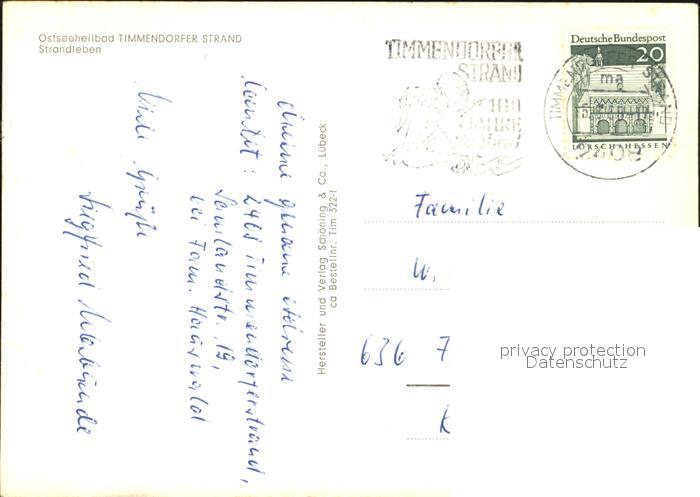 Ostseeheilbad TIMMENDORFER STRAND
Strandleben
Meine genaue Adresse
lautet:
2408 Timmendorferstrand,
Samlandstr. 19,
bei Fam. Hauswald
Viele Grüße
Siegfried
Hersteller und Verlag Schöning & Co., Lübeck
ca Bestellnr. Tim 322-1
TIMMENDORFER
STRAND
100
JAHRE
Deutsche Bundespost
20
LORSCH/HESSEN
2408
Familie
W.
636 7
K
privacy protection
Datenschutz